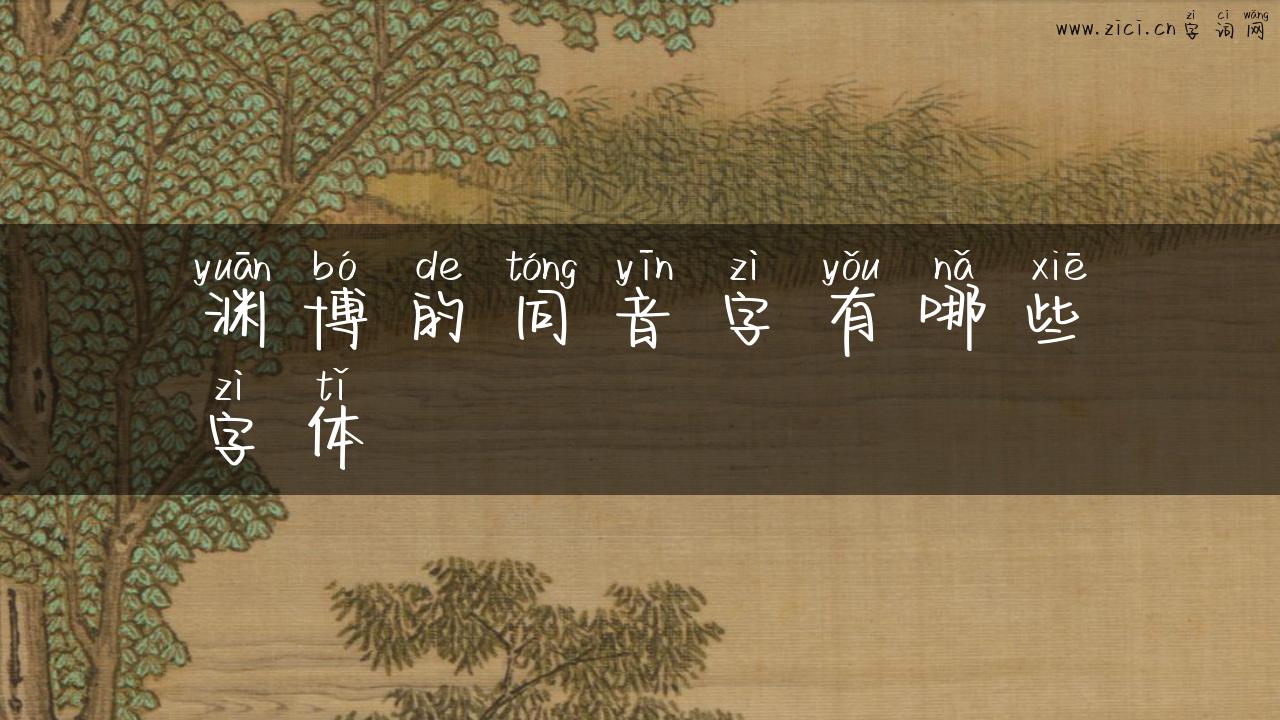 zì cí wǎng
www.zici.cn字词网
yuān bó de tóng yīn zì yǒu nǎ xiē
渊博的同音字有哪些
zì tǐ
字体